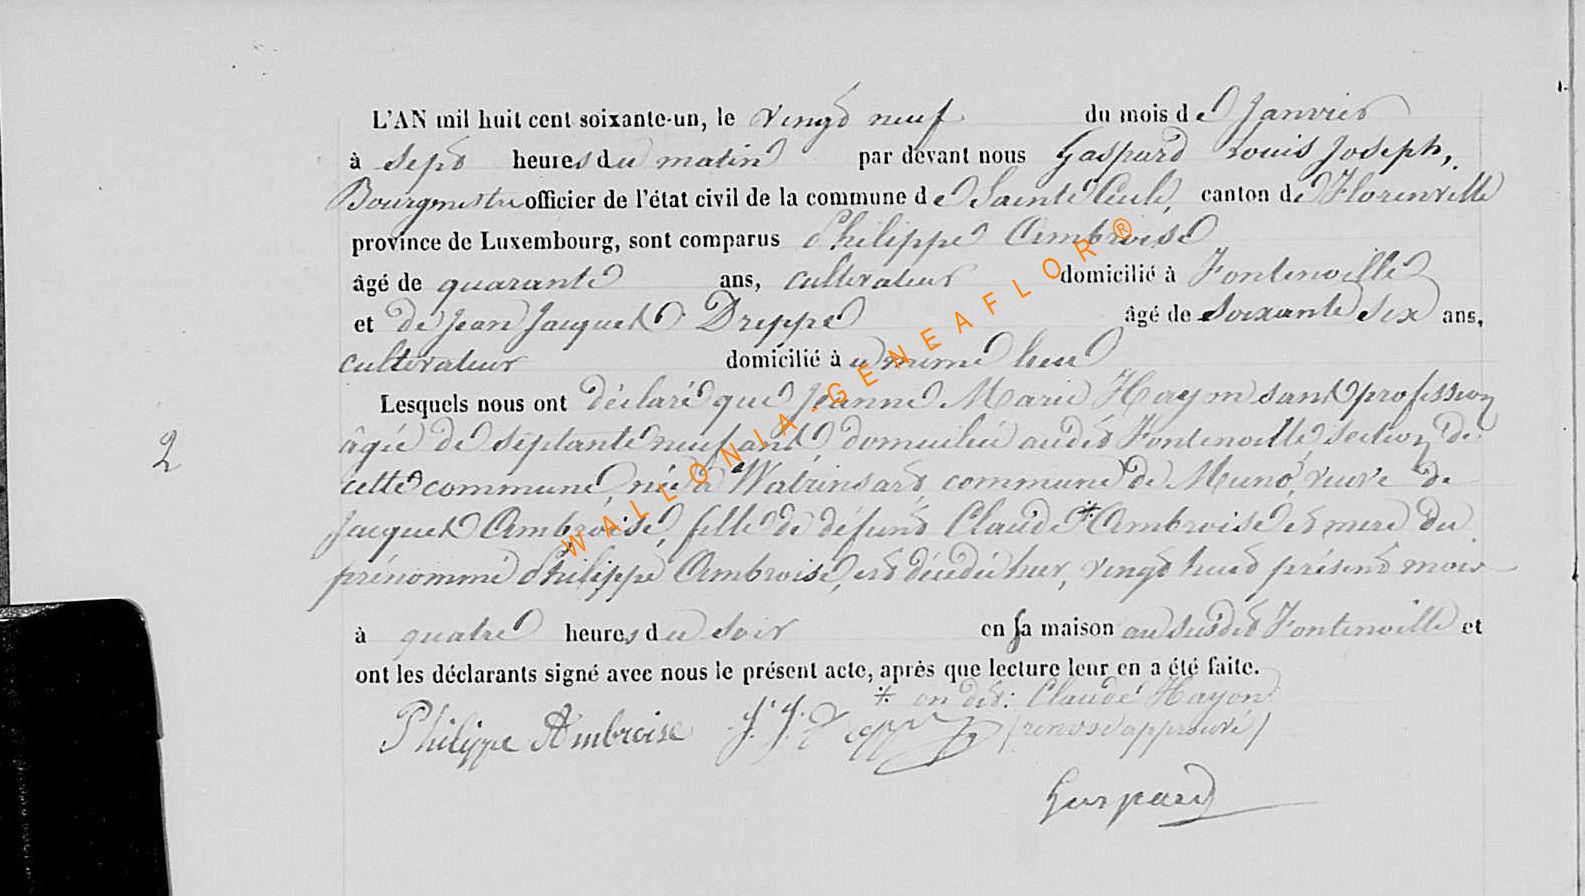 L'AN mil huit cent soixante-un, le vingt neuf du mois de Janvier
à sept heures du matin par devant nous Gaspard Louis Joseph,
Bourgmestre officier de l'état civil de la commune de Sainte Cécile, canton de Florenville
province de Luxembourg, sont comparus Philippe Ambroise
âgé de quarante ans, cultivateur domicilié à Fontenoille
et de Jean Jacques Dreppe âgé de soixante six ans,
cultivateur domicilié à u même lieu
Lesquels nous ont déclaré que Jeanne Marie Hayon sans profession
âgée de septante neuf ans, domiciliée audit Fontenoille, section de
cette commune, née à Watrinsart, commune de Muno, veuve de
Jacques Ambroise, fille de défunt Claude * Ambroise et mere du
prénommé Philippe Ambroise, est décédée hier, vingt huit présent mois
à quatre heures du soir en sa maison au susdit Fontenoille et
ont les déclarants signé avec nous le présent acte, après que lecture leur en a été faite.
* on dit: Claude Hayon
(renvoi approuvé)
Philippe Ambroise J. J.
Gaspard
2
WALLONIA-GENEAFLOR ®